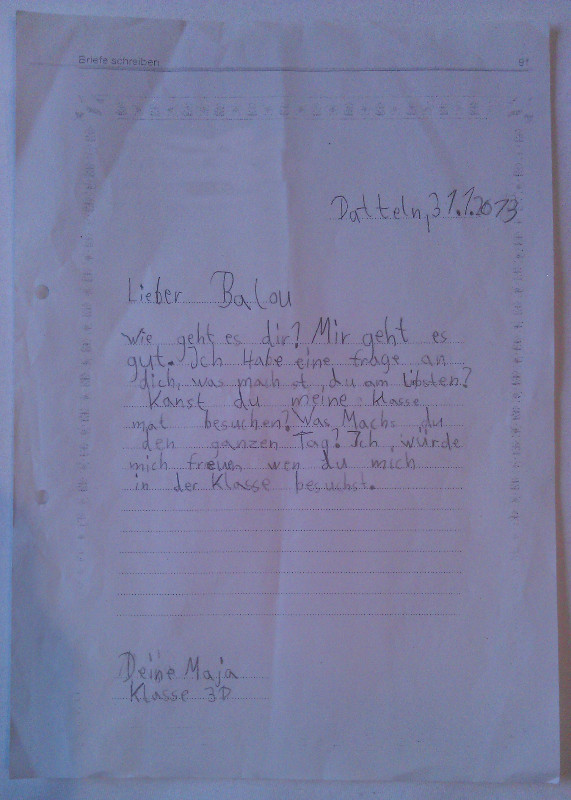 Briefe schreiben 91
Datteln, 31.1.2013
Lieber Balou
wie geht es dir? Mir geht es
gut. Ich Habe eine frage an
dich, was mach st du am libsten?
Kanst du meine klasse
mal besuchen? Was Machs du
den ganzen Tag? Ich würde
mich freuen wen du mich
in der Klasse besuchst.
Deine Maja
Klasse 3D